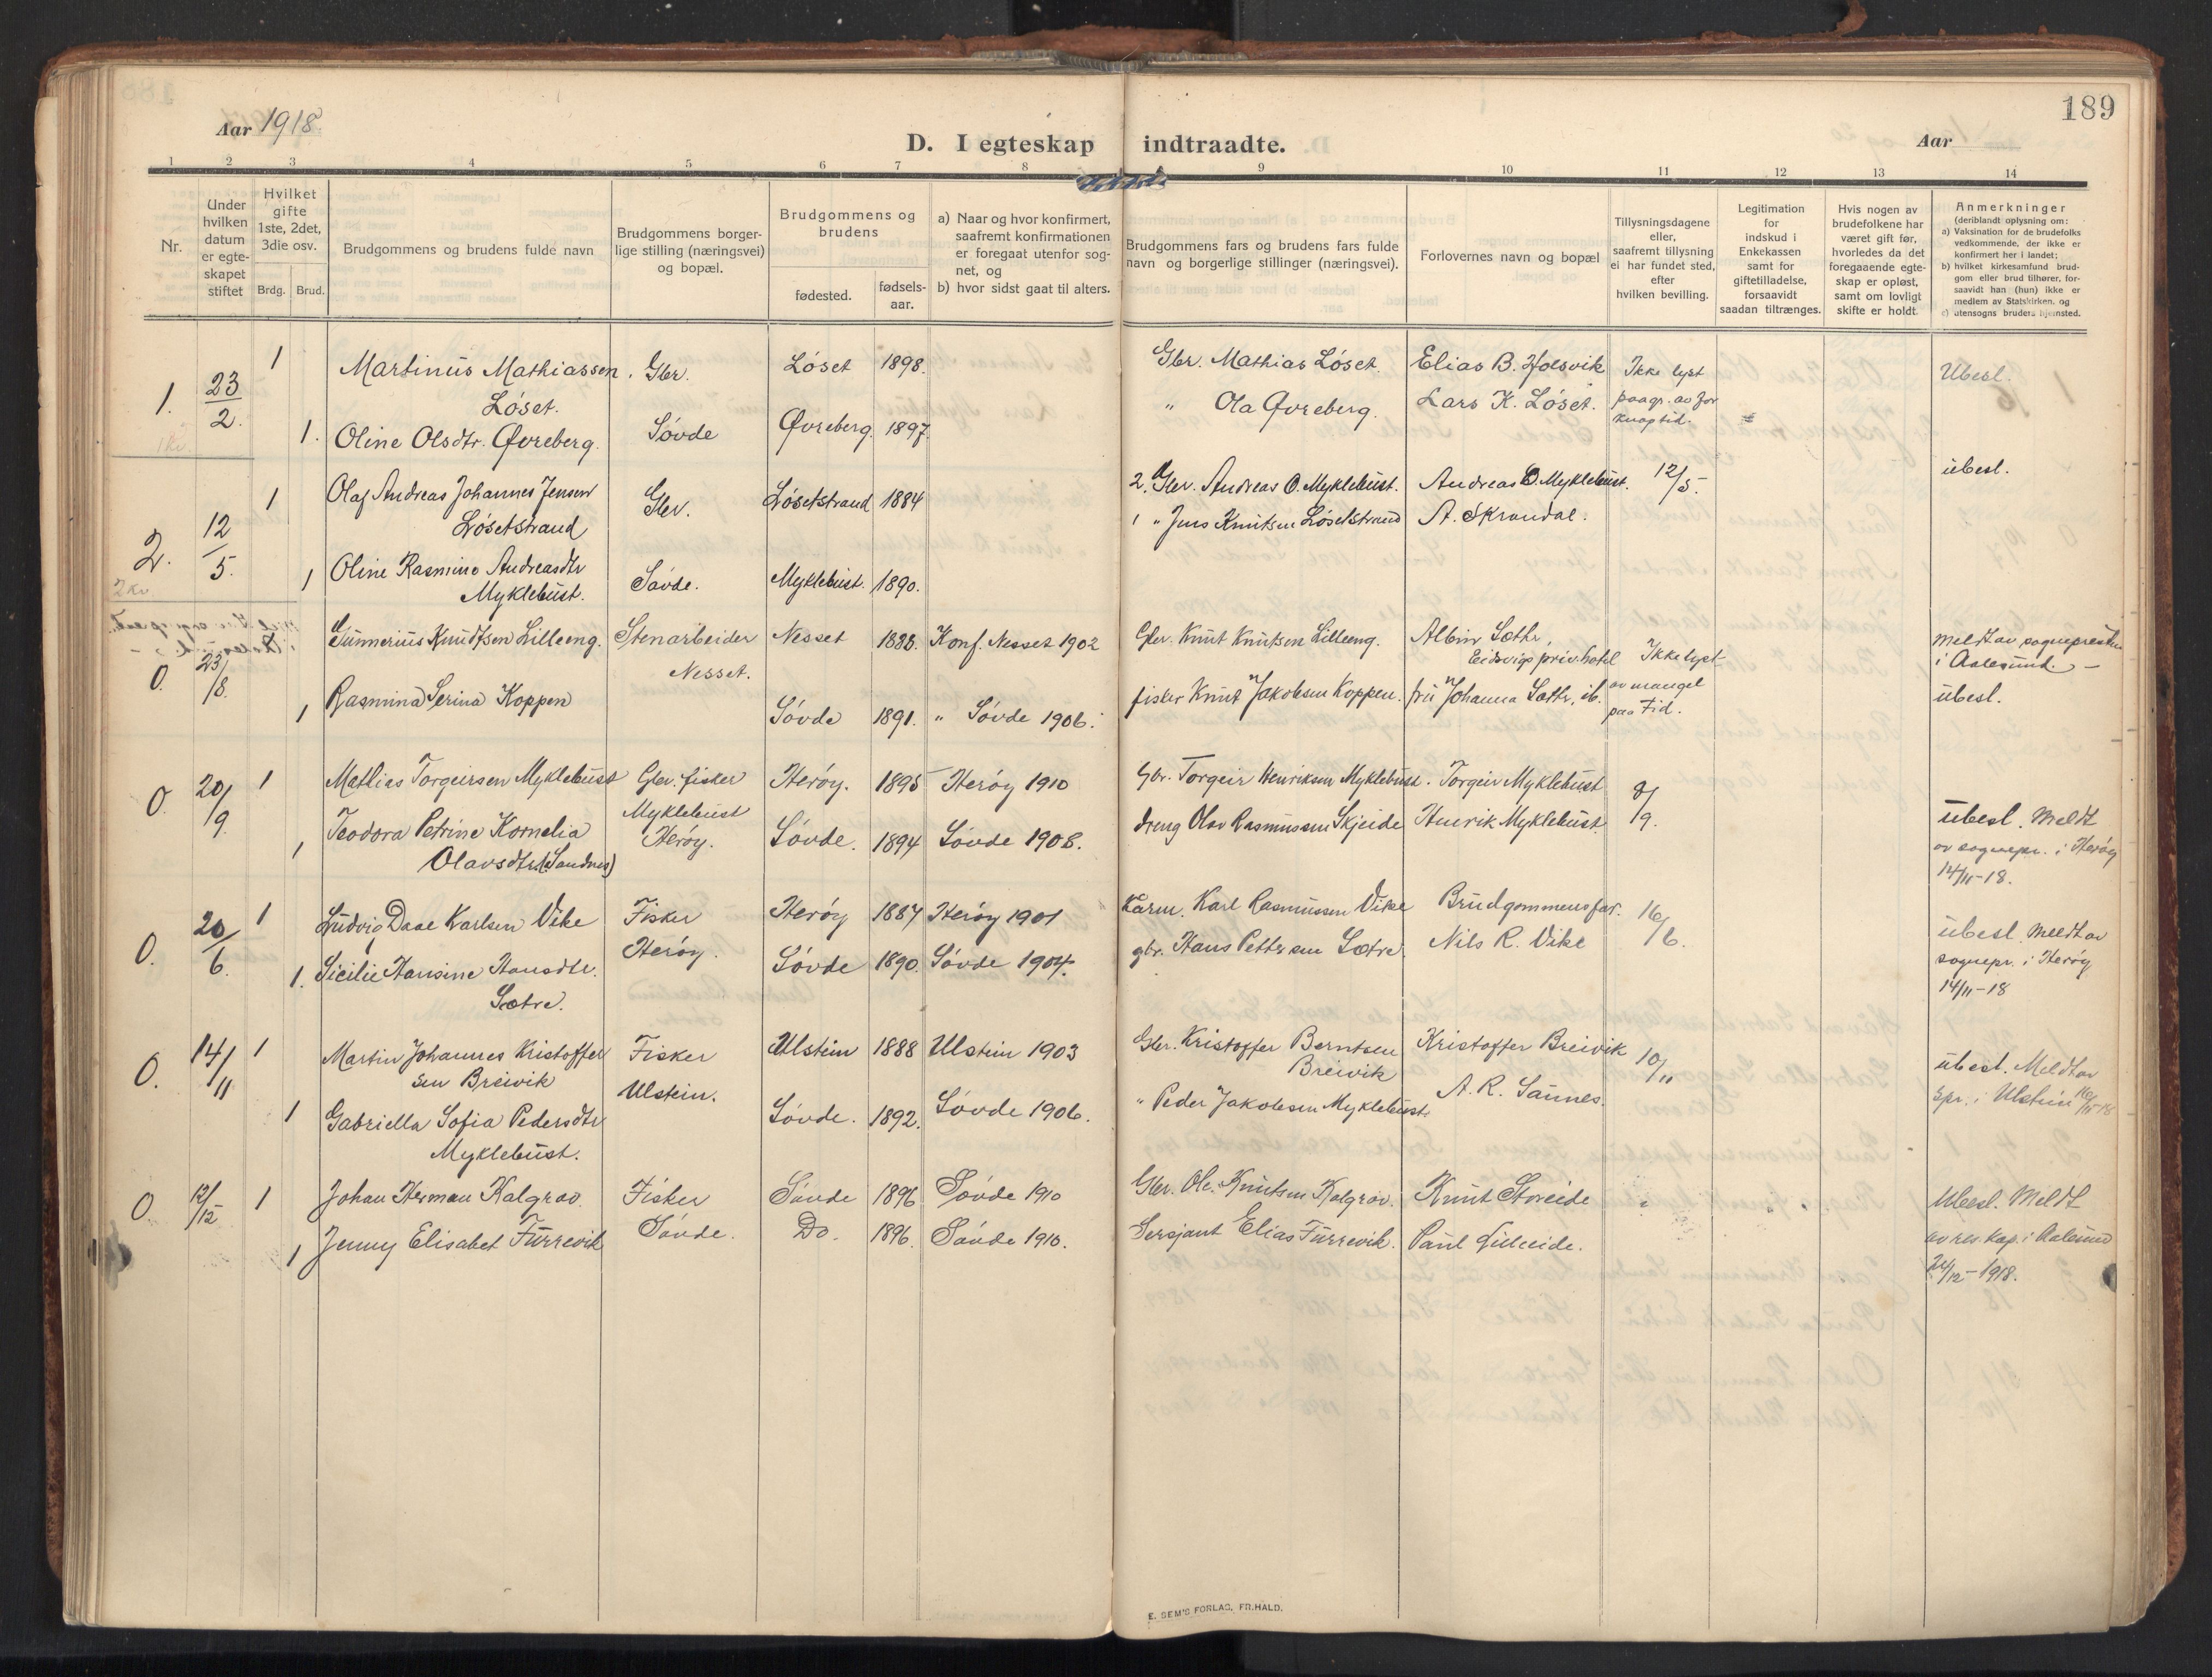 189
Aar 1918.
D. I egteskap indtraadte.
Aar
1 2 3 4 5 6 7 8 9 10 11 12 13 14
Nr.
Under hvilken datum er egteskapet stiftet
Hvilket gifte 1ste, 2det, 3die osv.
Brdg. Brud.
Brudgommens og brudens fulde navn
Brudgommens borgerlige stilling (næringsvei) og bopæl.
Brudgommens og brudens
fødested.
fødselsaar.
a) Naar og hvor konfirmert, saafremt konfirmationen er foregaat utenfor sognet, og
b) hvor sidst gaat til alters.
Brudgommens fars og brudens fars fulde navn og borgerlige stillinger (næringsvei).
Forlovernes navn og bopæl
Tillysningsdagene eller, saafremt tillysning ei har fundet sted, efter hvilken bevilling.
Legitimation for indskud i Enkekassen samt for giftetilladelse, forsaavidt saadan tiltrænges.
Hvis nogen av brudefolkene har været gift før, hvorledes da det foregaaende egteskap er opløst, samt om lovligt skifte er holdt.
Anmerkninger
(deriblandt oplysning om:
a) Vaksination for de brudefolks vedkommende, der ikke er konfirmert her i landet;
b) hvilket kirkesamfund brudgom eller brud tilhører, forsaavidt han (hun) ikke er medlem av Statskirken, og
c) utensogns bruders hjemsted.
1. 23/2. 1 Martinus Mathiassen Løset. Gbr. Løset 1898. Gbr. Mathias Løset. Elias B. Holsvik Ikke lyst Ubesl.
1. Oline Olsdtr. Øvreberg. Søvde Øvreberg. 1897. " Ola Øvreberg. Lars K. Løset. paagr. av for knap tid.
1 kv.
2. 12/5. 1 Olaf Andreas Johannes Jensen Løsetstrand Gbr. Løsetstrand 1884 2. Gbr. Andreas O. Myklebust. Andreas O. Myklebust. 12/5. ubesl.
1 Oline Rasmine Andreasdtr Myklebust. Søvde. Myklebust. 1890. 1 " Jens Knutsen Løsetstrand A. Skrondal.
2 kv.
0. 23/8. Gunnerius Knudtsen Lilleeng. Stenarbeider Nesset. Nesset 1888. Konf. Nesset 1902 Gbr. Knut Knutsen Lilleeng. Albin Sæthr, Eidsvigs priv. hotel Ikke lyst meldt av sognepresten i Aalesund. –
1 Rasmina Serina Koppen Søvde 1891. " Søvde 1906. fisker Knut Jakobsen Koppen. fru Johanna Sæthr, ib. av mangel paa Tid. ubesl.
0 20/9. 1 Mathias Torgeirsen Myklebust Gbr. fisker Herøy. 1895 Herøy 1910 Gbr. Torgeir Henriksen Myklebust. Torgeir Myklebust 8/9. ubesl. Meldt
1 Teodora Petrine Kornelia Olavsdtr. (Sandnes) Myklebust Herøy. Søvde. 1894 Søvde 1908. dreng Olav Rasmussen Skjeide Henrik Myklebust av sognepr. i Herøy 14/11-18.
0. 20/6. 1 Ludvig Daae Karlsen Vike Fisker Herøy 1887 Herøy 1901 Kårm. Karl Rasmussen Vike Brudgommens far. 16/6. ubesl. Meldt av
1. Sicilie Hansine Hansdtr. Sætre. Herøy. Søvde 1890. Søvde 1904. gbr. Hans Pettersen Sætre. Nils R. Vike sognepr. i Herøy 14/11-18
0. 14/11 1 Martin Johannes Kristoffersen Breivik Fisker Ulstein 1888 Ulstein 1903 Gbr. Kristoffer Berntsen Breivik Kristoffer Breivik 10/11 ubesl. Meldt av
1 Gabriella Sofia Pedersdtr Myklebust. Ulstein. Søvde. 1892. Søvde 1906. " Peder Jakobsen Myklebust. A. R. Sannes. Spr. i Ulstein 16/11-18
0. 12/12 1 Johan Herman Kalgrav. Fisker Søvde 1896 Søvde 1910 Gbr. Ole Knutsen Kalgrav. Knut Storeide " " Ubesl. Meldt
1 Jenny Elisabet Furrevik Søvde. Do. 1896. Søvde 1910. Sersjant Elias Furrevik. Paul Lileeide. av res. kap. i Aalesund 24/12-1918.
E. SEM'S FORLAG, FR.HALD.